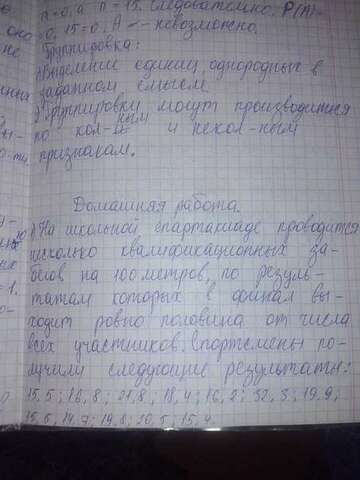 n=0, а n=15. Следовательно: P(A)=
=0:15=0. А – невозможно.
Группировка:
1) Выделение единиц, однородных в
заданном смысле
2) Группировки могут производится
по кол-ным и некол-ным
признакам.
Домашняя работа.
1) На школьной спартакиаде проводится
несколько квалификационных за-
бегов на 100 метров, по резуль-
татам которых в финал вы-
ходит ровно половина от числа
всех участников. Спортсмены по-
лучили следующие результаты:
15,5; 16,8; 21,8; 18,4; 16,2; 32,3; 19,9;
15,6; 14,7; 19,8; 20,5; 15,4.